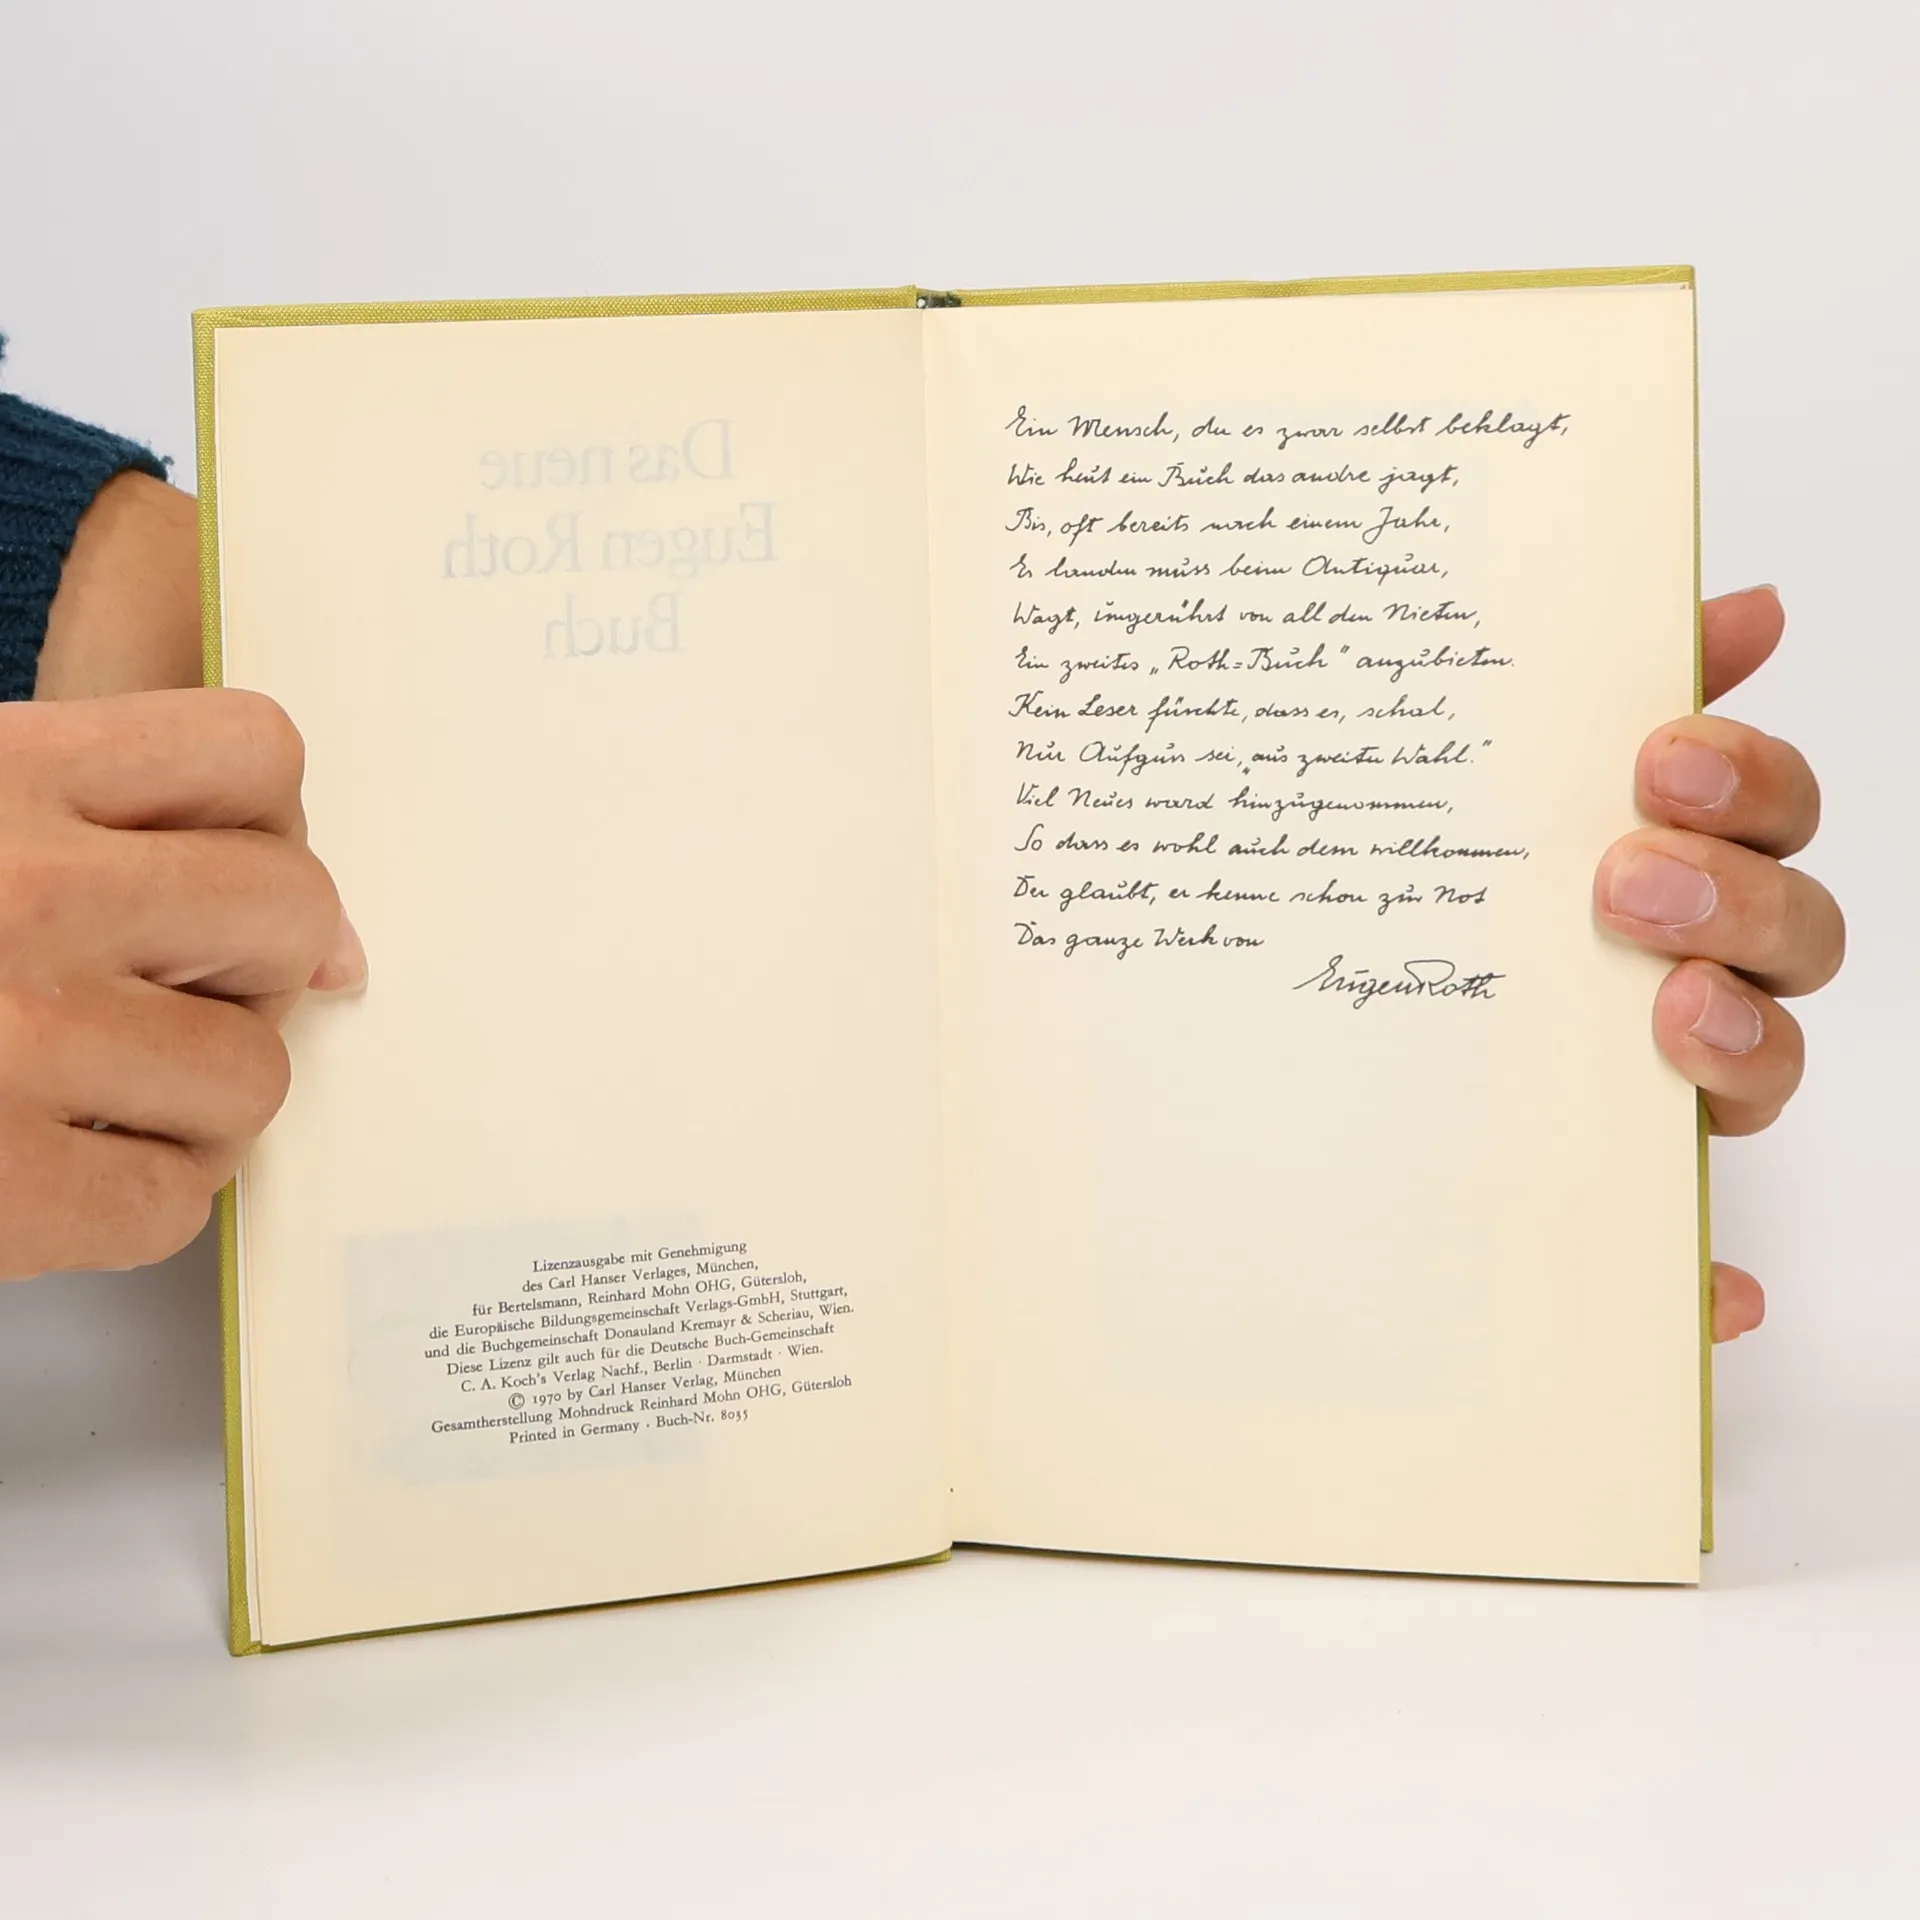 Das neue
Eugen Roth
Buch
Lizenzausgabe mit Genehmigung
des Carl Hanser Verlages, München,
für Bertelsmann, Reinhard Mohn OHG, Gütersloh,
die Europäische Bildungsgemeinschaft Verlags-GmbH, Stuttgart,
und die Buchgemeinschaft Donauland Kremayr & Scheriau, Wien.
Diese Lizenz gilt auch für die Deutsche Buch-Gemeinschaft
C. A. Koch's Verlag Nachf., Berlin · Darmstadt · Wien.
© 1970 by Carl Hanser Verlag, München
Gesamtherstellung Mohndruck Reinhard Mohn OHG, Gütersloh
Printed in Germany · Buch-Nr. 8035
Ein Mensch, der es zwar selbst beklagt,
Wie heut ein Buch das andre jagt,
Bis, oft bereits nach einem Jahr,
Es landen muss beim Antiquar,
Wagt, ungerührt von all den Nieten,
Ein zweites „Roth=Buch" anzubieten.
Kein Leser fürchte, dass es, schal,
Nur Aufguss sei, „aus zweiter Wahl."
Viel Neues ward hinzugenommen,
So dass es wohl auch dem willkommen,
Der glaubt, er kenne schon zur Not
Das ganze Werk von
Eugen Roth